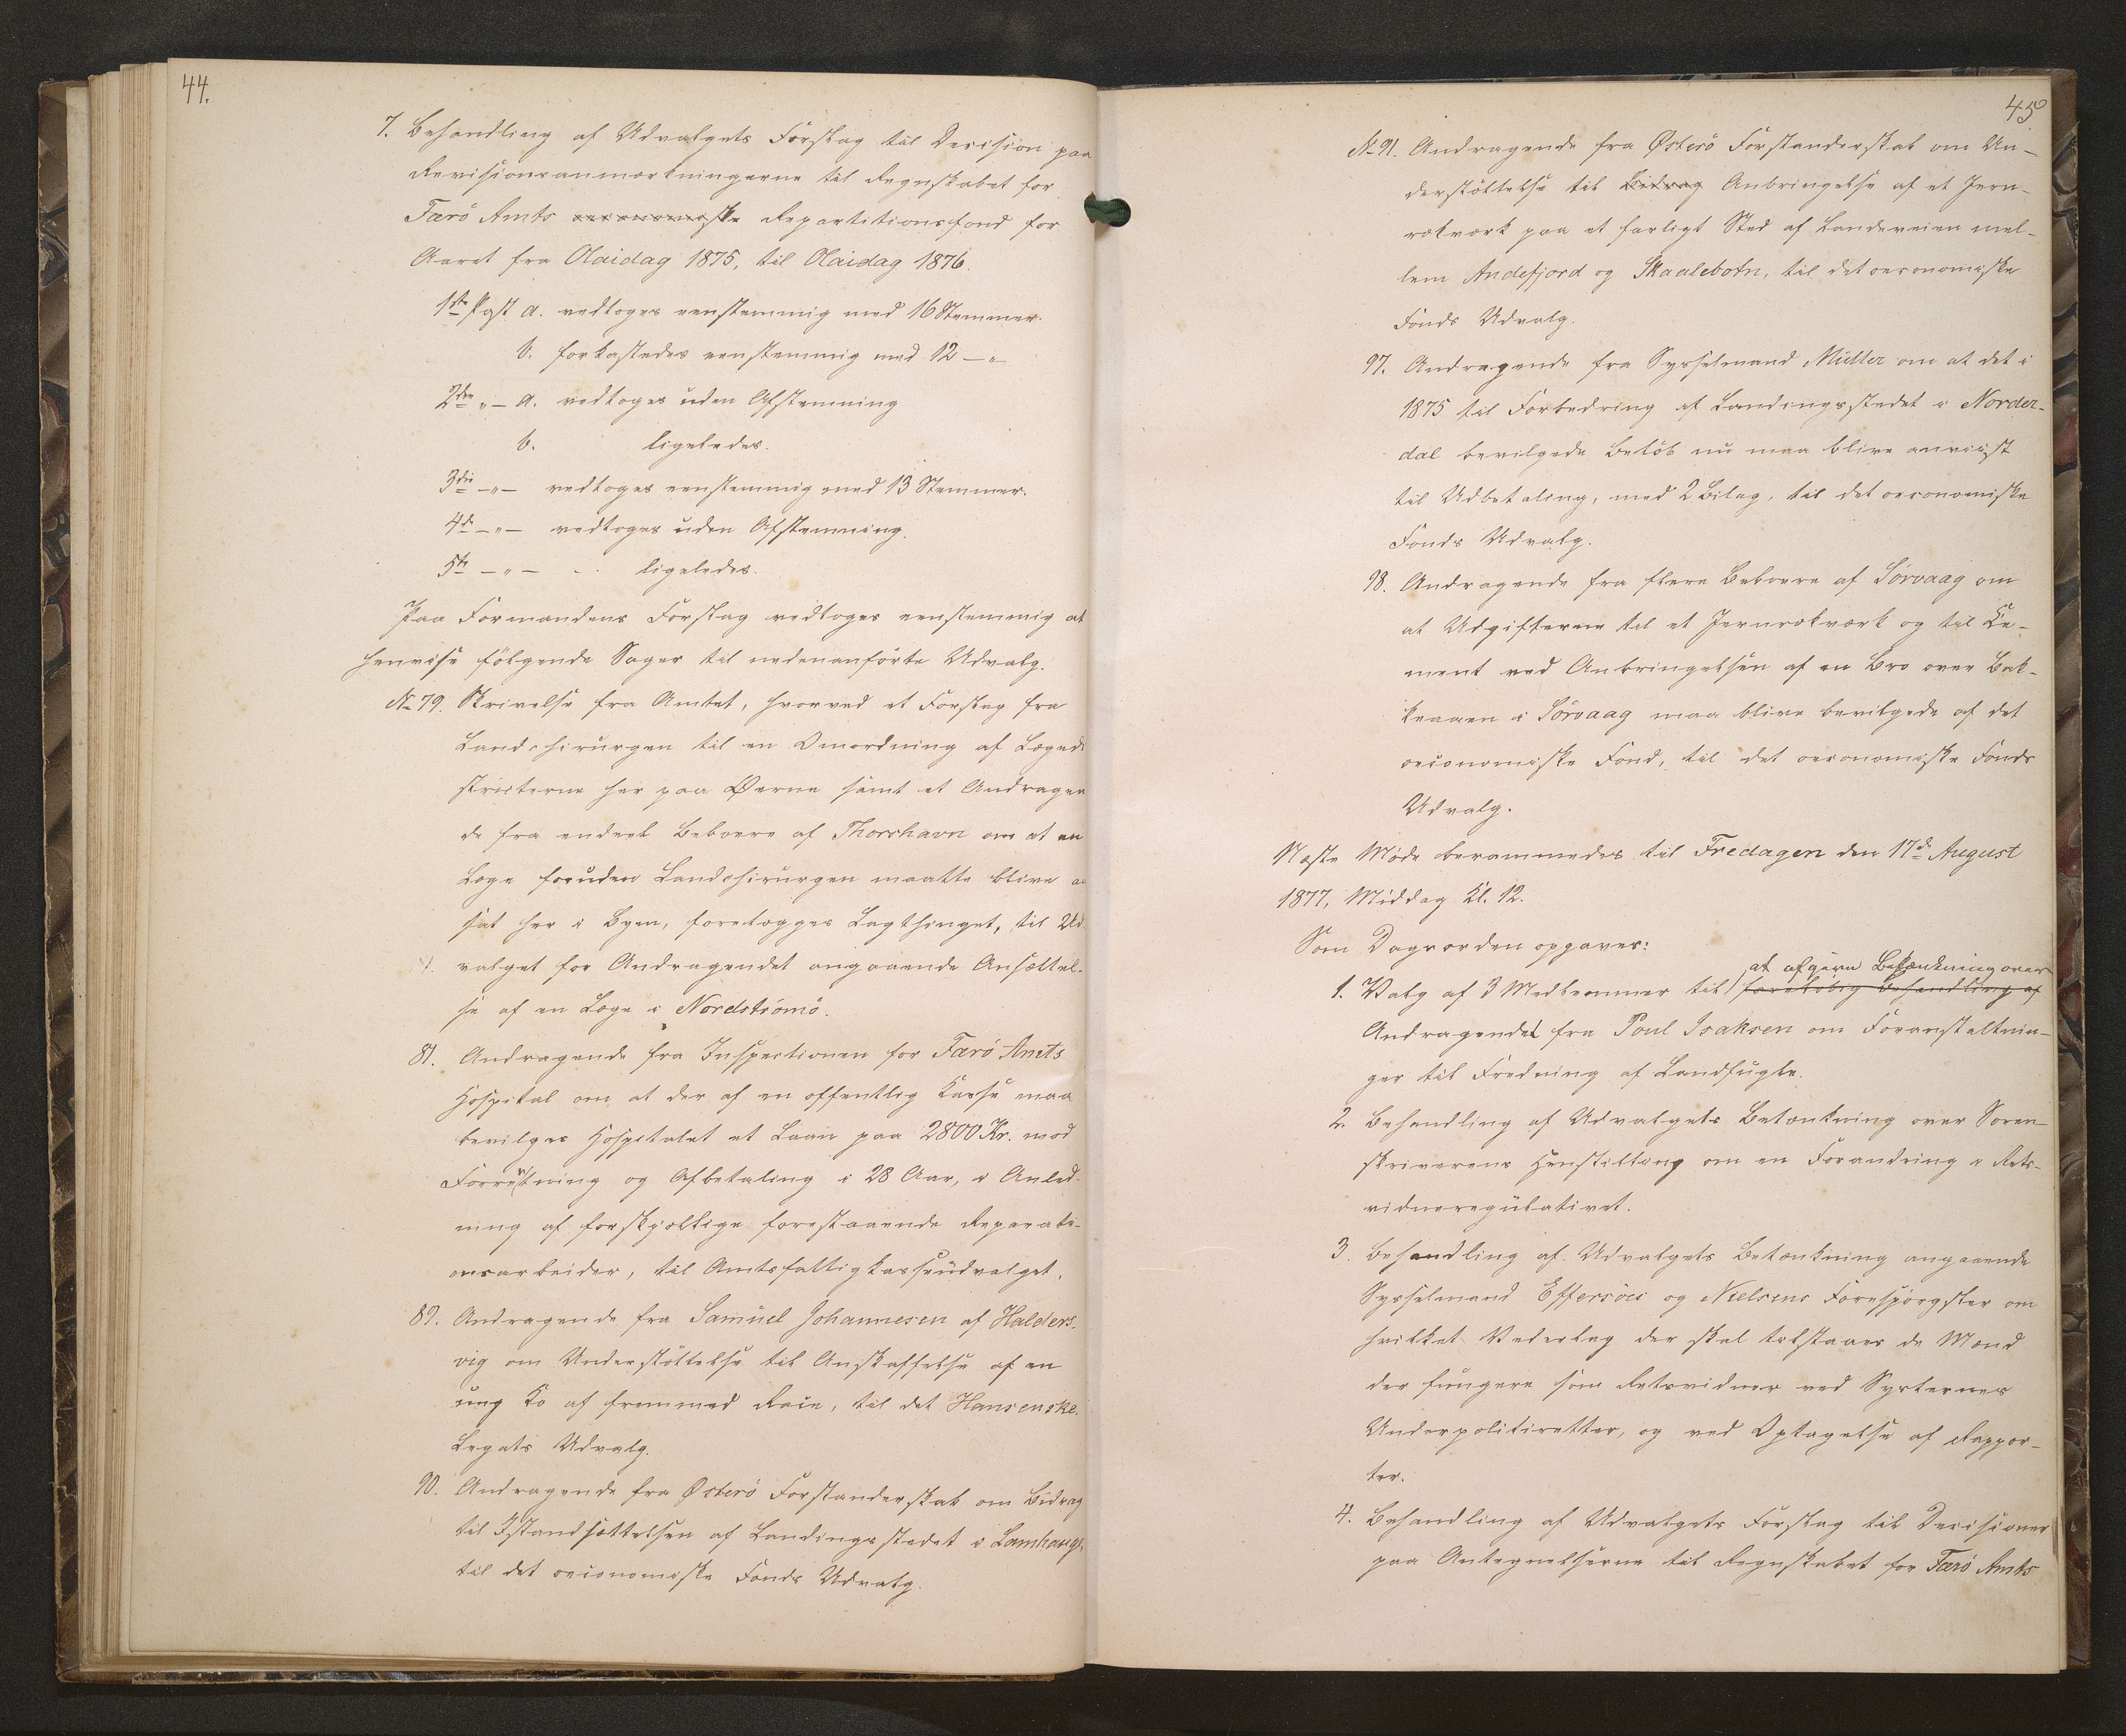 44.
7. Behandling af Udvalgets Forslag til Decision paa
Revisionsanmærkningerne til Regnskabet for
Færö Amts oeconomiske Repartitionsfond for
Aaret fra Olaidag 1875, til Olaidag 1876.
1ste Post a. vedtoges eenstemmig med 16 Stemmer.
b. forkastedes eenstemmig med 12 — " —
2den " — a. vedtoges uden Afstemning
b. ligeledes.
3die — " — vedtoges eenstemmig med 13 Stemmer.
4de — " — vedtoges uden Afstemning.
5te — " — ligeledes.
Paa Formandens Forslag vedtoges eenstemmig at
henvise fölgende Sager til nedenanförte Udvalg.
No 79. Skrivelse fra Amtet, hvorved et Forslag fra
Landchirurgen til en Omordning af Lægedi
stricterne her paa Øerne samt et Andragen
de fra endeel Beboere af Thorshavn om at en
Læge foruden Landchirurgen maatte blive an
sat her i Byen, forelægges Lagthinget, til Ud
valget for Andragendet angaaende Ansættel-
se af en Læge i Nordströmö.
81. Andragende fra Inspectionen for Færö Amts
Hospital om at der af en offentlig Kasse maa
bevilges Hospitalet et Laan paa 2800 Kr. mod
Forrentning og Afbetaling i 28 Aar, i Anled-
ning af forskjellige forestaaende Reparati-
onsarbeider, til Amtsfattigkasseudvalget.
89. Andragende fra Samuel Johannesen af Halders-
vig om Understöttelse til Anskaffelse af en
ung Ko af fremmed Race, til det Hansenske
Legats Udvalg.
90. Andragende fra Østerö Forstanderskab om Bidrag
til Istandsættelsen af Landingsstedet i Lamhauge
til det oeconomiske Fonds Udvalg.
45
No 91. Andragende fra Østerö Forstanderskab om Un-
derstöttelse til Bidrag Anbringelse af et Jern-
rækværk paa et farligt Sted af Landeveien mel-
lem Andefjord og Skaalebotn, til det oeconomiske
Fonds Udvalg.
97. Andragende fra Sysselmand Müller om at det i
1875 til Forbedring af Landingsstedet i Norder-
dal bevilgede Belöb nu maa blive anviist
til Udbetaling, med 2 Bilag, til det oeconomiske
Fonds Udvalg.
98. Andragende fra flere Beboere af Sörvaag om
at Udgifterne til et Jernrækværk og til Ce-
ment ved Anbringelsen af en Bro over Bak-
keaaen i Sörvaag maa blive bevilgede af det
oeconomiske Fond, til det oeconomiske Fonds
Udvalg.
Næste Möde berammedes til Fredagen den 17de August
1877, Middag Kl. 12.
Som Dagsorden opgaves:
at afgive Betænkning over
1. Valg af 3 Medlemmer til forelöbig Behandling af
Andragendet fra Poul Isaksen om Foranstaltnin-
ger til Fredning af Landfugle.
2. Behandling af Udvalgets Betænkning over Soren-
skriverens Henstilling om en Forandring i Rets-
vidneregulativet.
3. Behandling af Udvalgets Betænkning angaaende
Sysselmand Effersöes og Nielsens Forespörgsler om
hvilket Vederlag der skal tilstaaes de Mænd
der fungere som Retsvidner ved Syslernes
Underpolitiretter, og ved Optagelse af Rappor-
ter.
4. Behandling af Udvalgets Forslag til Decisioner
paa Antegnelserne til Regnskabet for Færö Amts